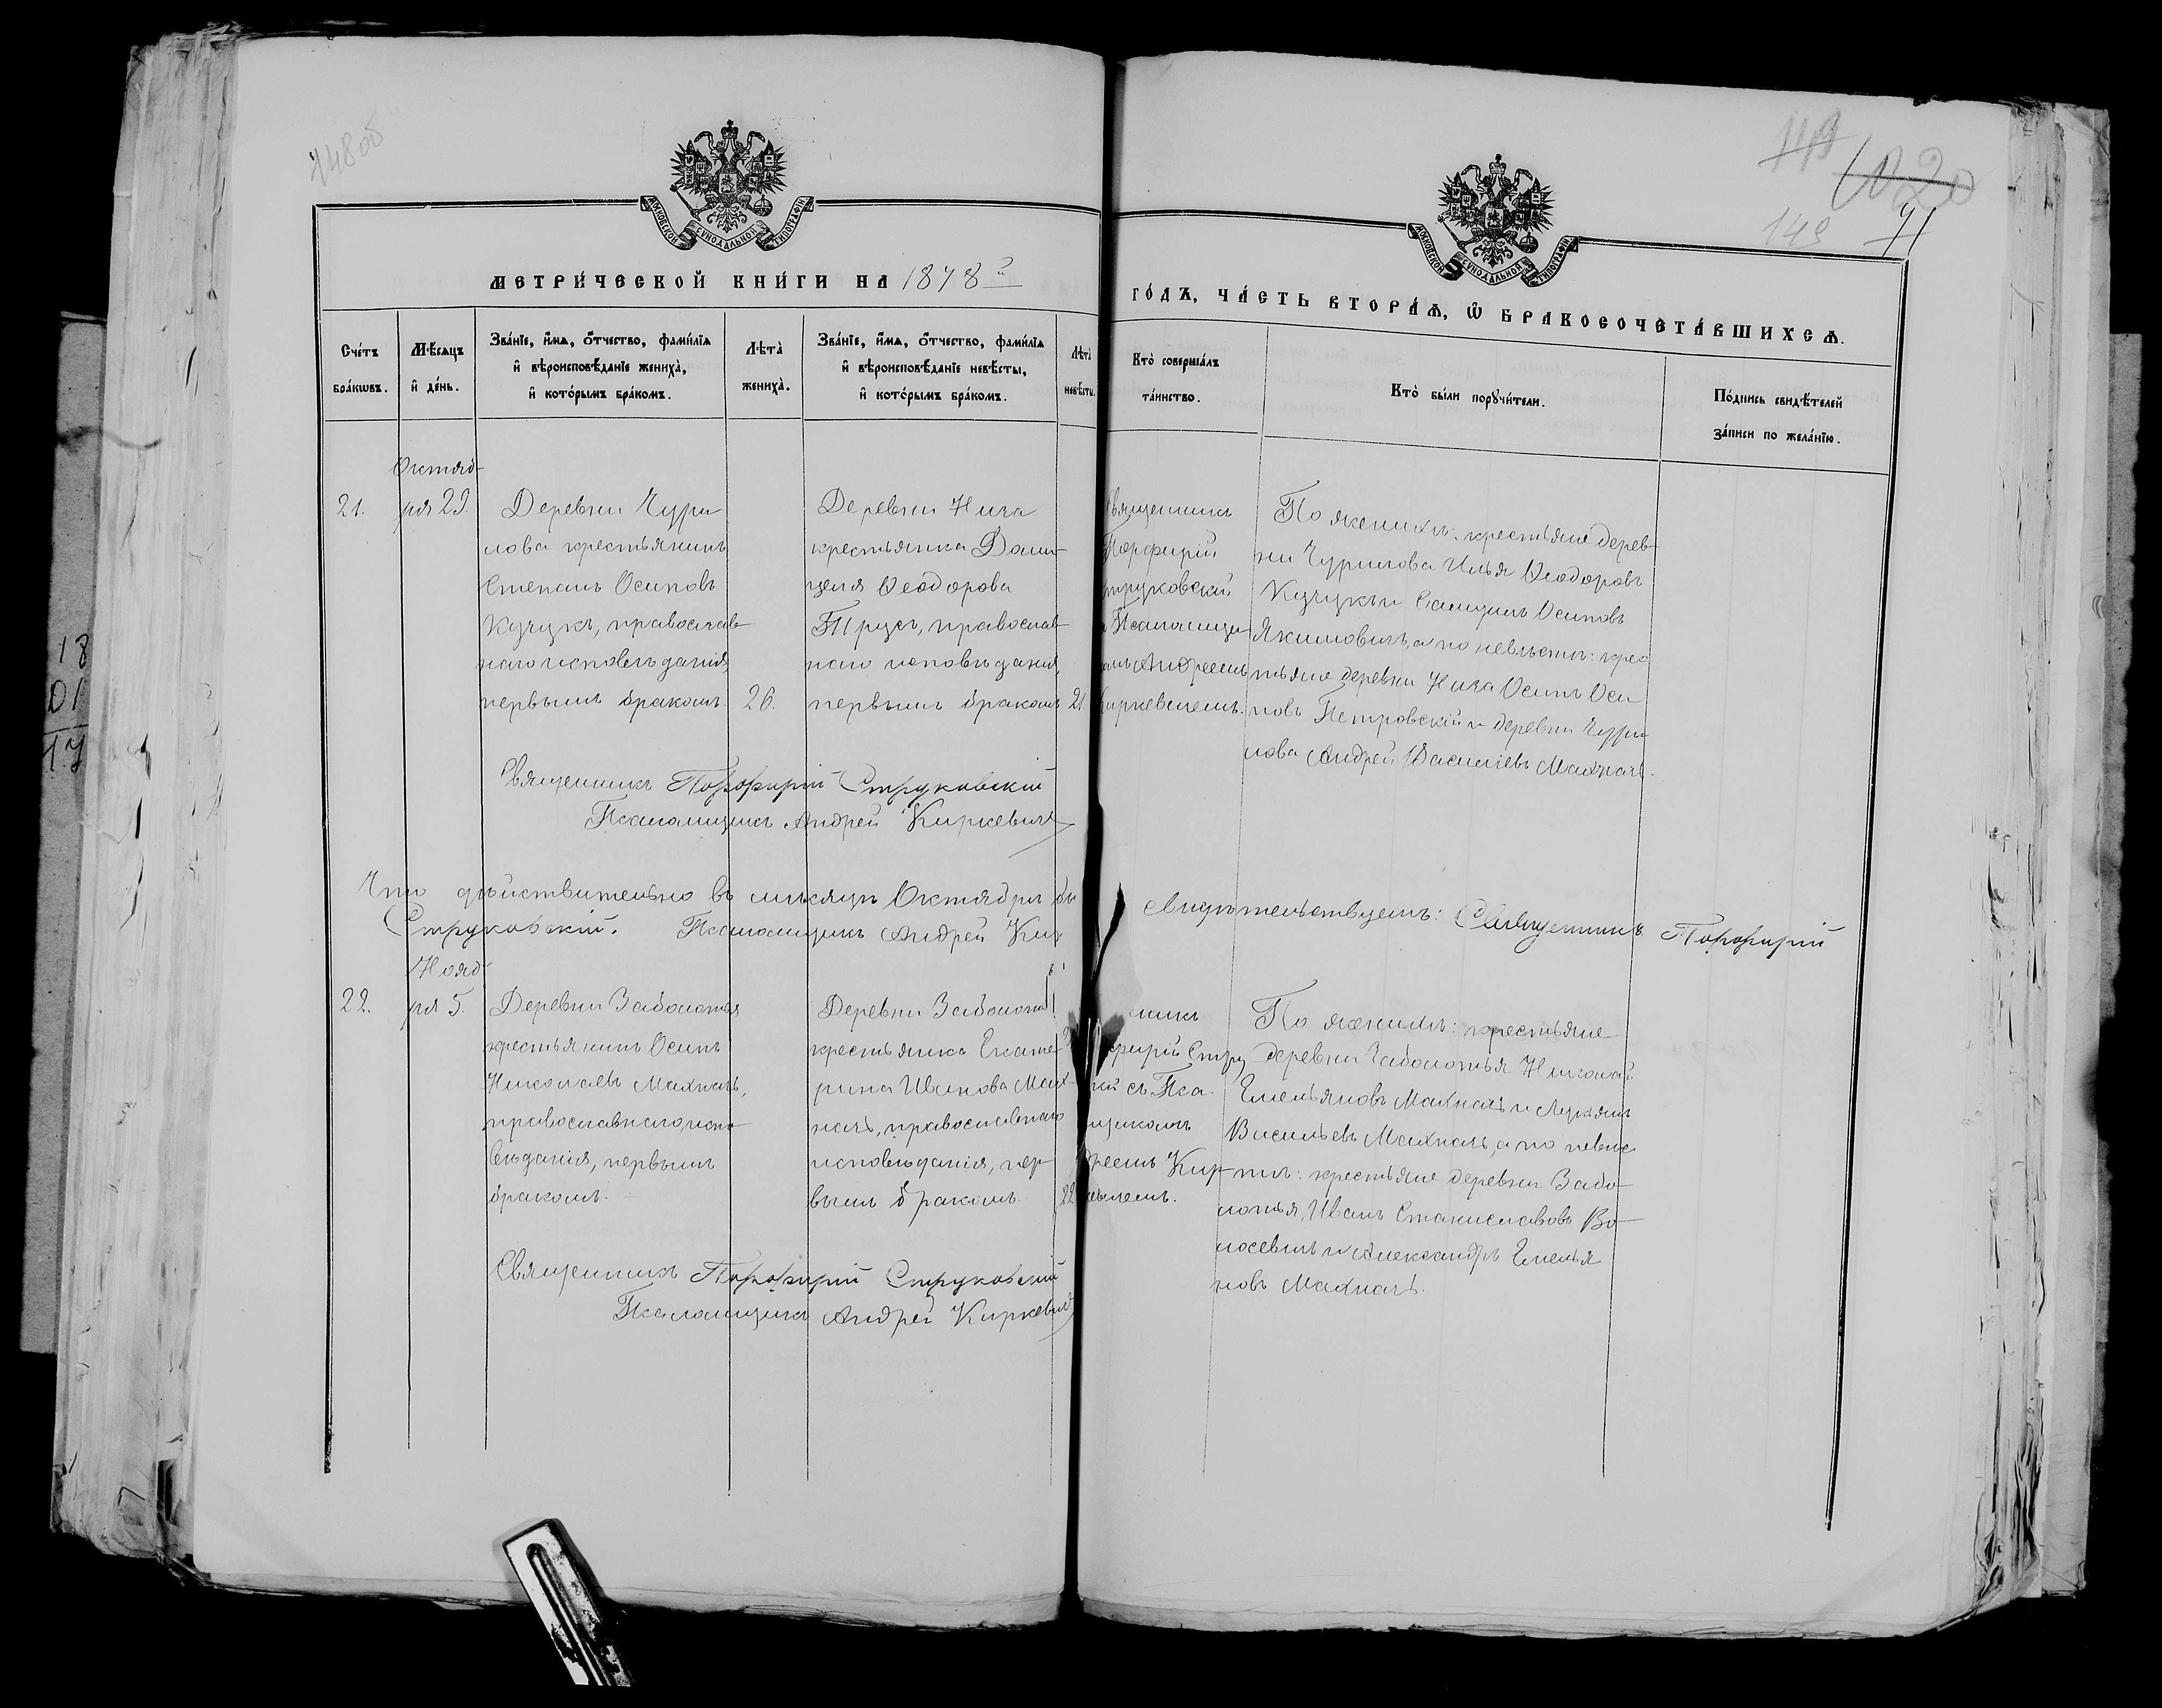 148 об
119
1020
149
71
МОСКОВСКОЙ СУНОДАЛЬНОЙ ТИПОГРАФІИ
МОСКОВСКОЙ СУНОДАЛЬНОЙ ТИПОГРАФІИ
МЕТРИ́ЧЕСКОЙ КНИ́ГИ НА 1878й
ГО́ДЪ, ЧА́СТЬ ВТОРА́Ѧ, Ѽ БРАКОСОЧЕТА́ВШИХСѦ.
Сче́тъ
бра́кѡвъ.
Мѣ́сѧцъ
и҆ де́нь.
Зва́нїе, и҆́мѧ, ѻ҆́тчество, фами́лїѧ
и҆ вѣроисповѣ́данїе жениха̀,
и҆ кото́рымъ бра́комъ.
Лѣ́та
жениха̀.
Зва́нїе, и҆́мѧ, ѻ҆́тчество, фами́лїѧ
и҆ вѣроисповѣ́данїе невѣ́сты,
и҆ кото́рымъ бра́комъ.
Лѣ́та
невѣ́сты.
Кто̀ соверша́лъ
та́инство.
Кто̀ бы́ли порꙋчи́тели.
По́дпись свидѣ́телей
за́писи по жела́нїю.
21.
Октяб-
ря 29.
Деревни Чури
лова крестьянинъ
Степанъ Осиповъ
Кучукъ, православ-
наго исповѣданія,
первымъ бракомъ.
26.
Деревни Нича
крестьянка Доми-
целя Ѳеодорова
Трусъ, православ-
наго исповѣданія,
первымъ бракомъ
21.
Священникъ
Порфирій
Струковскій
Псаломщи-
омъ Андреемъ
Киркевичемъ.
По женихѣ: крестьяне дерев-
ни Чурилова Илья Ѳеодоровъ
Кучукъ и Самуилъ Осиповъ
Якимовичъ, а по невѣстѣ: крес
тьяне деревни Нича Осипъ Оси
повъ Петровскій и деревни Чури
лова Андрей Василіевъ Махначъ.
Священникъ Порфирій Струковскій
Псаломщикъ Андрей Киркевичъ
Что дѣйствительно въ мѣсяцѣ Октябрѣ
свидѣтельствуемъ: Священникъ Порфирій
Струковскій. Псаломщикъ Андрей Кир
22.
Нояб-
ря 5.
Деревни Заболотья
крестьянинъ Осипъ
Николаевъ Махначъ,
православнаго испо-
вѣданія, первымъ
бракомъ.
Деревни Заболоть
крестьянка Екате-
рина Иванова Мах-
начъ, православнаго
исповѣданія, пер-
вымъ бракомъ.
22
никъ
фирій Стру
кій съ Пса-
щикомъ
дреемъ Кир-
кевичемъ.
По женихѣ: крестьяне
деревни Заболотья Николай
Емельяновъ Махначъ и Лукьянъ
Васильевъ Махначъ, а по невѣс-
тѣ: крестьяне деревни Забо-
лотья, Иванъ Станиславовъ Во-
лосевичъ и Александръ Емелья
новъ Махначъ.
Священникъ Порфирій Струковскій
Псаломщикъ Андрей Киркевичъ
18
01
17